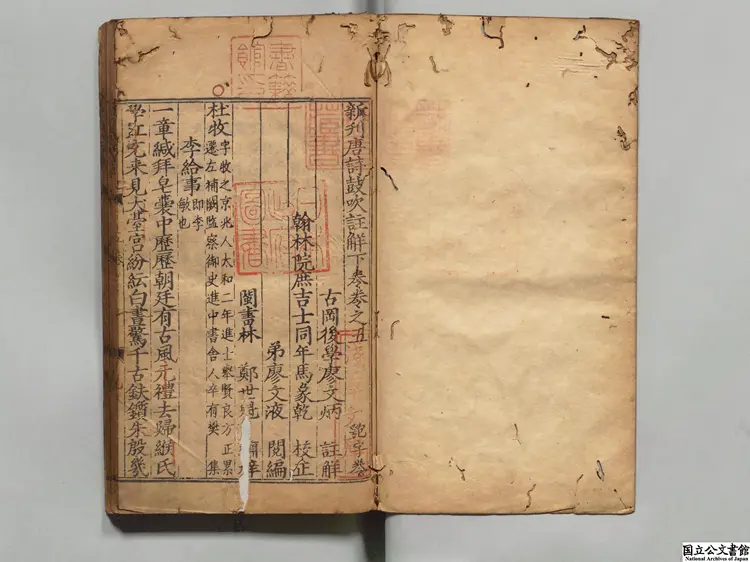 新刊唐詩鼓吹註解下奏卷之五 匏字卷
古岡後學廖文炳 註解
翰林院庶吉士同年馬象乾 校正
弟廖文液 閱編
閩書林 鄭世 梓
杜牧 字牧之京兆人太和二年進士舉賢良方正累
遷左補闕監察御史進中書舍人卒有樊 集
李給事 即李
敏也
一章緘拜皂囊中歷歷朝廷有古風元禮去歸緱氏
學江充來見犬臺宮紛紜白晝驚千古鈇鑕朱殷幾
國立公文書館
National Archives of Japan